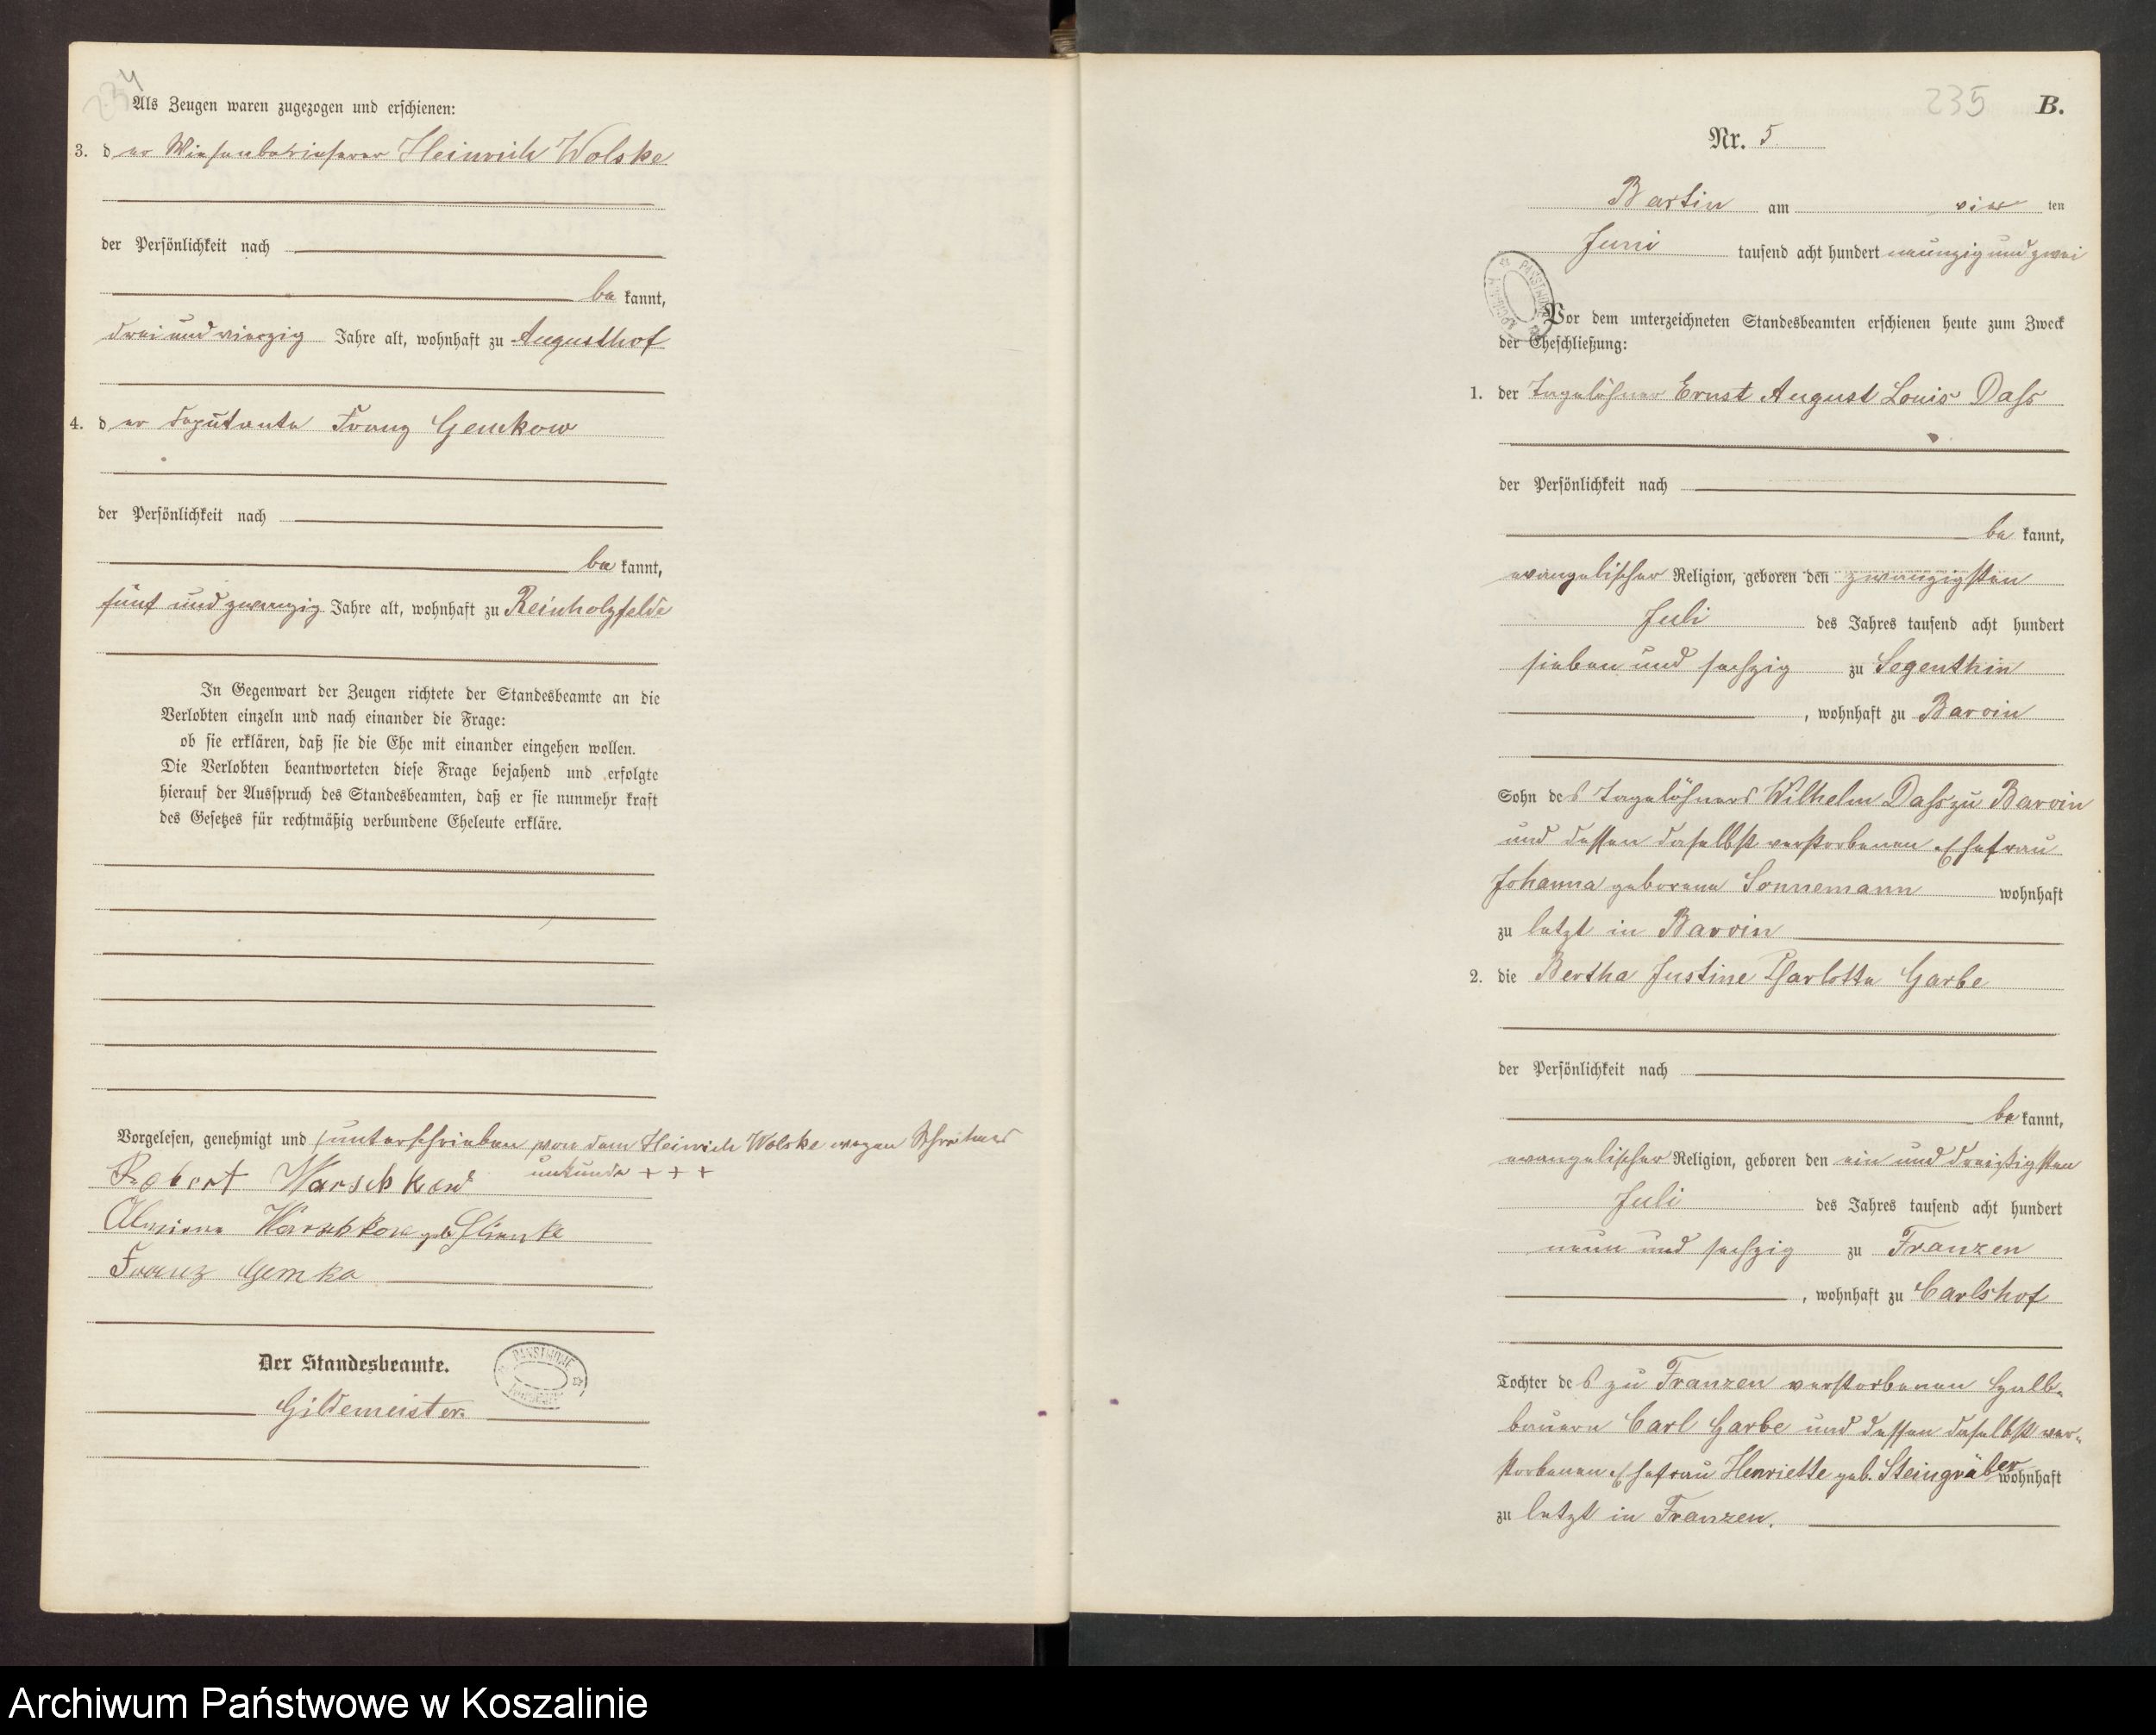 234
Als Zeugen waren zugezogen und erschienen:
3. der Heinrich Wolske
der Persönlichkeit nach
bekannt,
dreiundvierzig Jahre alt, wohnhaft zu Augusthof
4. der Deputante Franz Gemkow
der Persönlichkeit nach
bekannt,
fünf und zwanzig Jahre alt, wohnhaft zu Reinholzfelde
In Gegenwart der Zeugen richtete der Standesbeamte an die
Verlobten einzeln und nach einander die Frage:
ob sie erklären, daß sie die Ehe mit einander eingehen wollen.
Die Verlobten beantworteten diese Frage bejahend und erfolgte
hierauf der Ausspruch des Standesbeamten, daß er sie nunmehr kraft
des Gesetzes für rechtmäßig verbundene Eheleute erkläre.
Vorgelesen, genehmigt und unterschrieben, von dem Heinrich Wolske wegen Schreibens
unkunde + + +
Robert Warschkow
Warschkow geb. Glienke
Franz Gemka
Der Standesbeamte.
Gildemeister.
235
B.
Nr. 5.
Bartin am vier ten
Juni tausend acht hundert neunzig und zwei
Vor dem unterzeichneten Standesbeamten erschienen heute zum Zweck
der Eheschließung:
1. der Tagelöhner Ernst August Louis Dass
der Persönlichkeit nach
bekannt,
evangelischer Religion, geboren den zwanzigsten
Juli des Jahres tausend acht hundert
sieben und sechzig zu Segenthin
, wohnhaft zu Barvin
Sohn des Tagelöhners Wilhelm Dass zu Barvin
und dessen daselbst verstorbenen Ehefrau
Johanna geborene Sonnemann wohnhaft
zu letzt in Barvin
2. die Bertha Justine Charlotte Garbe
der Persönlichkeit nach
bekannt,
evangelischer Religion, geboren den ein und dreißigsten
Juli des Jahres tausend acht hundert
neun und sechzig zu Franzen
, wohnhaft zu Carlshof
Tochter des zu Franzen verstorbenen Halb-
bauern Carl Garbe und dessen daselbst ver-
storbenen Ehefrau Henriette geb. Steingräber wohnhaft
zu letzt in Franzen.
Archiwum Państwowe w Koszalinie